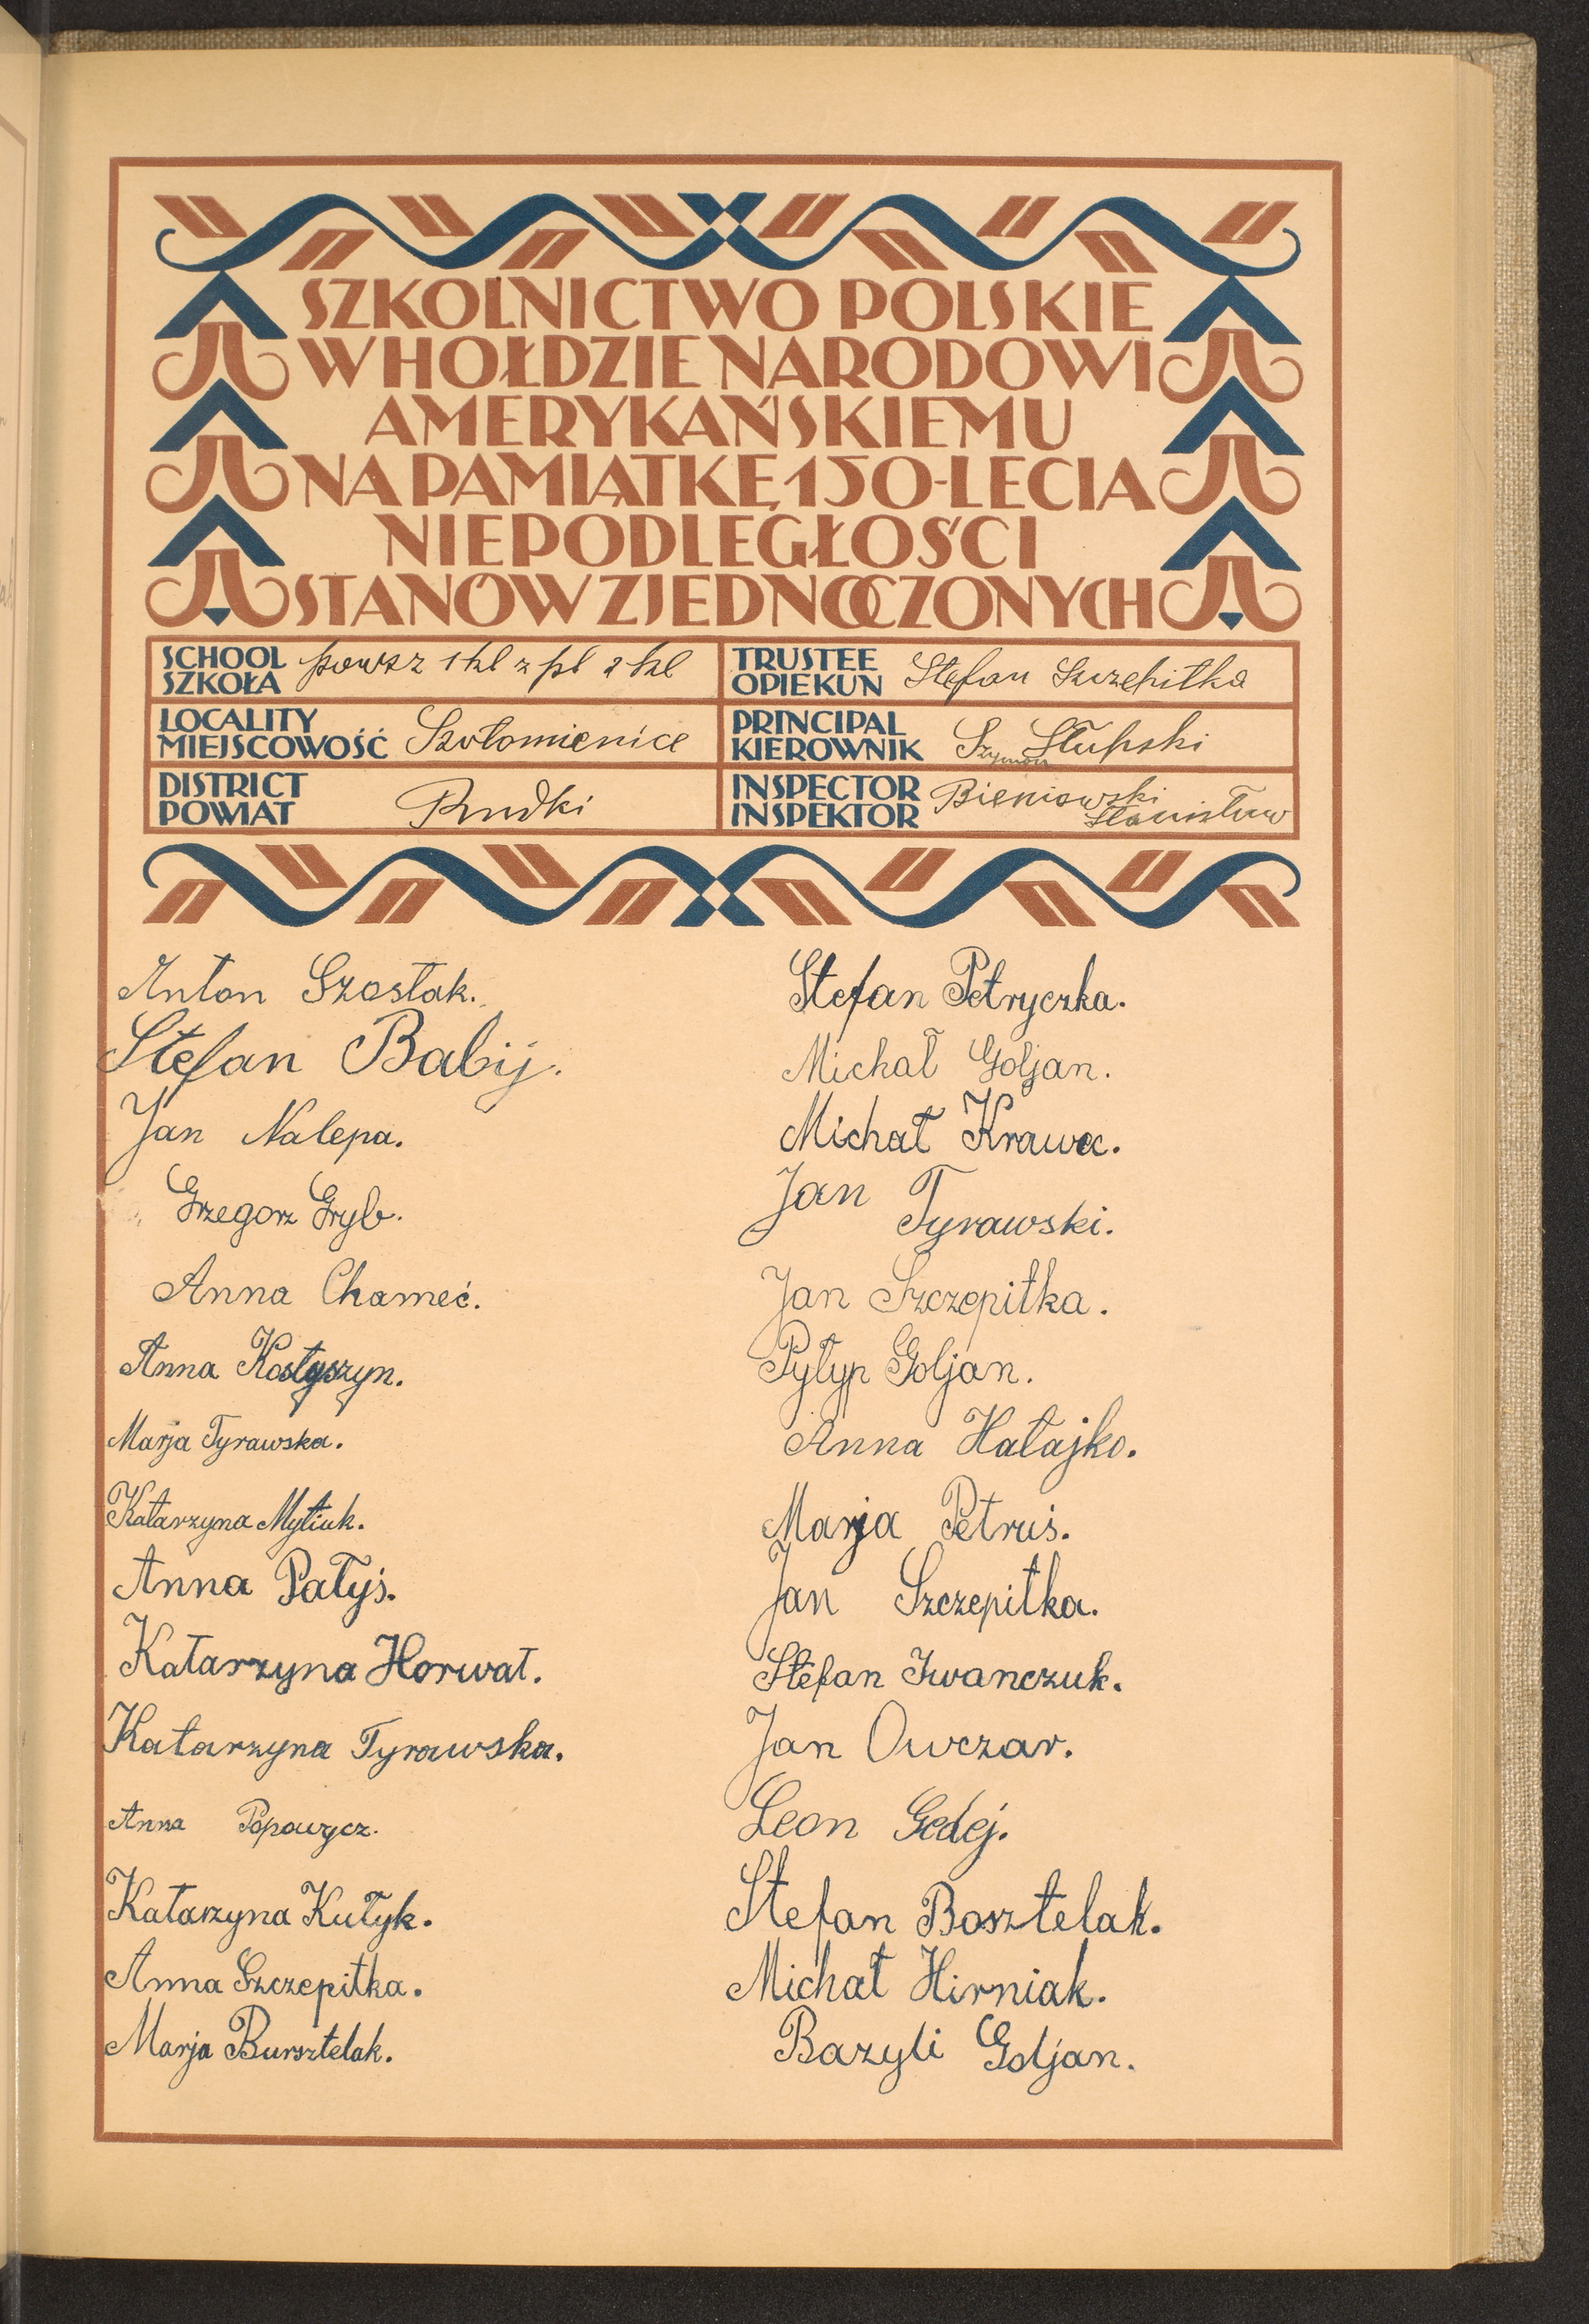 SZKOLNICTWO POLSKIE
W HOŁDZIE NARODOWI
AMERYKAŃSKIEMU
NA PAMIĄTKĘ 150-LECIA
NIEPODLEGŁOŚCI
STANÓW ZJEDNOCZONYCH
SCHOOL
SZKOŁA powsz 1 kl z pl 2 kl
TRUSTEE
OPIEKUN Stefan Szczepitka
LOCALITY
MIEJSCOWOŚĆ Szołomienice
PRINCIPAL
KIEROWNIK Szymon Słupski
DISTRICT
POWIAT Rudki
INSPECTOR
INSPEKTOR Bieniowski Stanisław
Anton Szostak.
Stefan Babij.
Jan Nalepa.
Grzegorz Gryb.
Anna Chameć.
Anna Kostyszyn.
Marja Tyrawska.
Katarzyna Mytiuk.
Anna Pałyś.
Katarzyna Horwat.
Katarzyna Tyrawska.
Anna Popowycz.
Katarzyna Kutyk.
Anna Szczepitka.
Marja Bursztelak.
Stefan Petryczka.
Michał Goljan.
Michał Krawec.
Jan Tyrawski.
Jan Szczepitka.
Pyłyp Goljan.
Anna Hałajko.
Marja Petruś.
Jan Szczepitka.
Stefan Iwanczuk.
Jan Owczar.
Leon Gedej.
Stefan Bosztelak.
Michał Hirniak.
Bazyli Goljan.